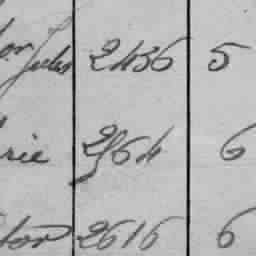 Jules 2436 5
rie 2564 6
tor 2616 6